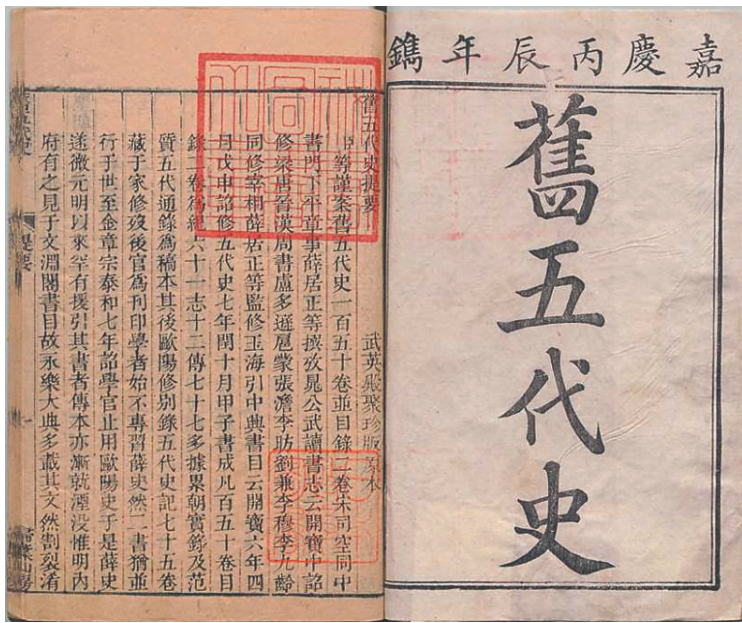 嘉慶丙辰年鐫
舊五代史
舊五代史提要
武英殿聚珍版原本
臣等謹案舊五代史一百五十卷並目錄二卷宋司空同中
書門下平章事薛居正等撰攷晁公武讀書志云開寶中詔
修梁唐晉漢周書盧多遜扈蒙張澹李昉劉兼李穆李九齡
同修宰相薛居正等監修玉海引中典書目云開寶六年四
月戊申詔修五代史七年閏十月甲子書成凡百五十卷目
錄二卷為紀六十一志十二傳七十七多據累朝實錄及范
質五代通錄為稿本其後歐陽修別錄五代史記七十五卷
藏于家修歿後官為刊印學者始不專習薛史然二書猶並
行于世至金章宗泰和七年詔學官止用歐陽史于是薛史
遂微元明以來罕有援引其書者傳本亦漸就湮没惟明內
府有之見于文淵閣書目故永樂大典多載其文然割裂淆
舊五代史
提要
一